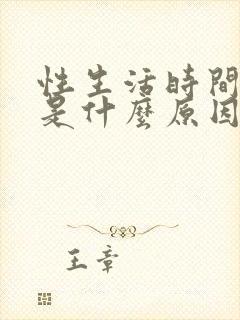 性生活時間
是什麼原因
王章